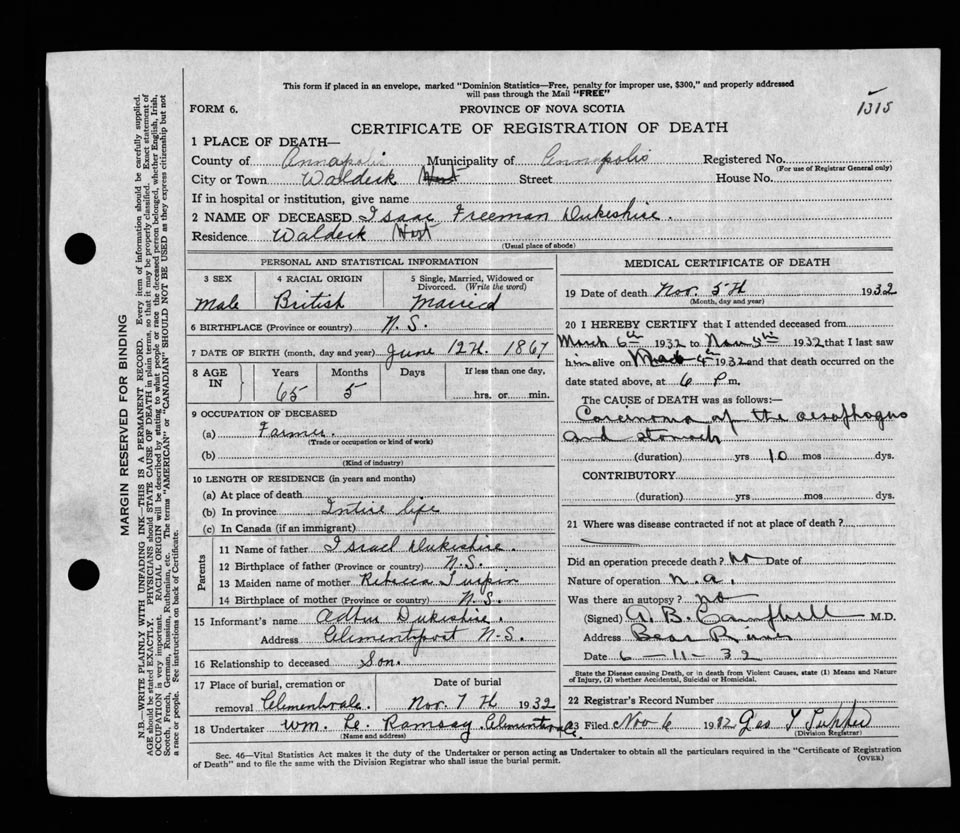 This form if placed in an envelope, marked "Dominion Statistics—Free, penalty for improper use, $300," and properly addressed
will pass through the Mail "FREE"
FORM 6.
PROVINCE OF NOVA SCOTIA
1315
CERTIFICATE OF REGISTRATION OF DEATH
1 PLACE OF DEATH—
County of Annapolis Municipality of Annapolis Registered No.
(For use of Registrar General only)
City or Town Waldeck West Street House No.
If in hospital or institution, give name
2 NAME OF DECEASED Isaac Freeman Dukeshire.
Residence Waldeck West
(Usual place of abode)
PERSONAL AND STATISTICAL INFORMATION
3 SEX 4 RACIAL ORIGIN 5 Single, Married, Widowed or
Divorced. (Write the word)
Male British Married
6 BIRTHPLACE (Province or country) N.S.
7 DATE OF BIRTH (month, day and year) June 12th. 1867
8 AGE IN Years Months Days If less than one day,
65 5 hrs. or min.
9 OCCUPATION OF DECEASED
(a) Farmer.
(Trade or occupation or kind of work)
(b)
(Kind of industry)
10 LENGTH OF RESIDENCE (in years and months)
(a) At place of death
(b) In province Intire life
(c) In Canada (if an immigrant)
Parents
11 Name of father Israel Dukeshire.
12 Birthplace of father (Province or country) N.S.
13 Maiden name of mother Rebecca Turpin
14 Birthplace of mother (Province or country) N.S.
15 Informant's name Dukeshire.
Address Clementsport N.S.
16 Relationship to deceased Son.
17 Place of burial, cremation or Date of burial
removal Clementsvale Nov. 7th 1932
18 Undertaker Wm. Ramsay
(Name and address)
MEDICAL CERTIFICATE OF DEATH
19 Date of death Nov. 5th 1932
(Month, day and year)
20 I HEREBY CERTIFY that I attended deceased from
March 6th 1932 to 1932 that I last saw
him alive on 4th 1932 and that death occurred on the
date stated above, at 6 P.m.
The CAUSE of DEATH was as follows:—
Carcinoma of the oesophagus
and stomach
(duration) yrs 10 mos dys.
CONTRIBUTORY
(duration) yrs mos dys.
21 Where was disease contracted if not at place of death?
Did an operation precede death? No Date of
Nature of operation n.a.
Was there an autopsy? no
(Signed) A. B. Campbell M.D.
Address Bear River
Date 6-11-32
State the Disease causing Death, or in death from Violent Causes, state (1) Means and Nature
of Injury, (2) whether Accidental, Suicidal or Homicidal.
22 Registrar's Record Number
23 Filed Nov 6 1932 Geo Y Tupper
(Division Registrar)
Sec. 46—Vital Statistics Act makes it the duty of the Undertaker or person acting as Undertaker to obtain all the particulars required in the "Certificate of Registration
of Death" and to file the same with the Division Registrar who shall issue the burial permit.
(OVER)
MARGIN RESERVED FOR BINDING
N.B.—WRITE PLAINLY WITH UNFADING INK—THIS IS A PERMANENT RECORD. Every item of information should be carefully supplied.
AGE should be stated EXACTLY. PHYSICIANS should STATE CAUSE OF DEATH in plain terms, so that it may be properly classified. Exact statement of
OCCUPATION is very important. RACIAL ORIGIN will be described by stating to what people or race the deceased person belonged, whether English, Irish,
Scotch, French, German, Russian, Ruthenian, etc. The terms "AMERICAN" or "CANADIAN" SHOULD NOT BE USED as they express citizenship but not
a race or people. See instructions on back of Certificate.